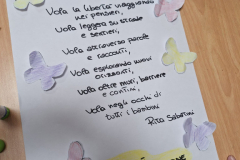 Vola la libertà viaggiando
nei pensieri,
Vola leggera su strade
e sentieri,
Vola attraverso parole
e racconti,
Vola esplorando nuovi
orizzonti,
Vola oltre muri, barriere
e confini,
Vola negli occhi di
tutti i bambini
Rita Sabatini